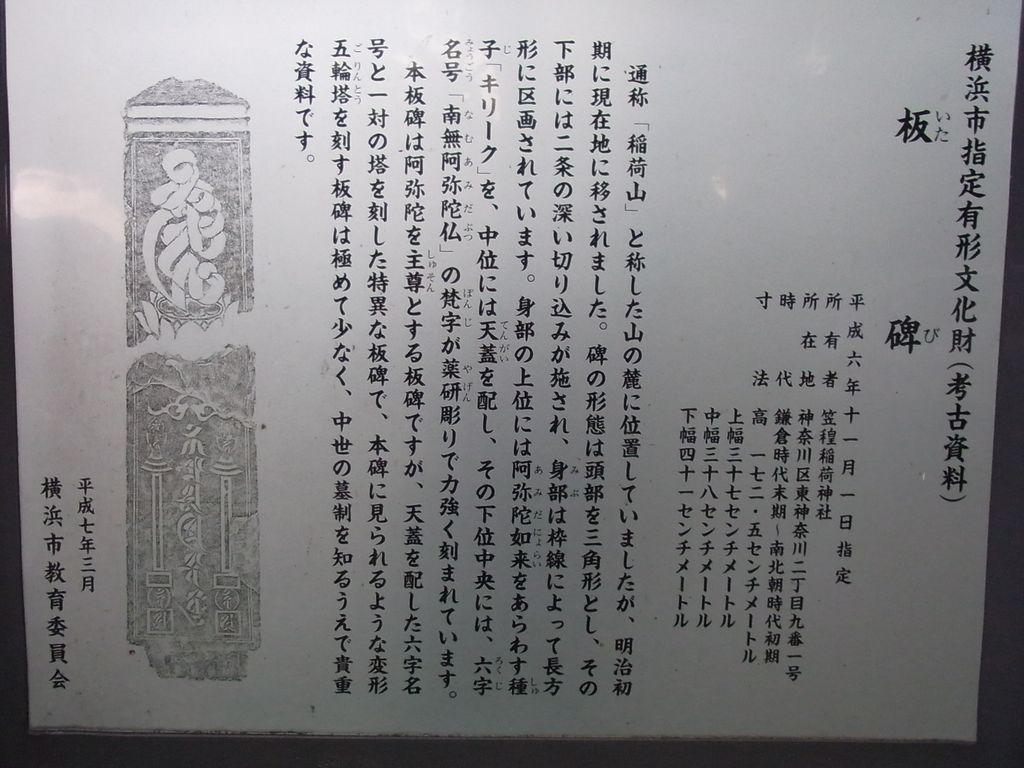 横浜市指定有形文化財（考古資料）
板碑
いた
び
平成六年十一月一日指定
所有者 笠䅣稲荷神社
所在地 神奈川区東神奈川二丁目九番一号
時代 鎌倉時代末期～南北朝時代初期
寸法 高 一七二・五センチメートル
上幅三十七センチメートル
中幅三十八センチメートル
下幅四十一センチメートル
通称「稲荷山」と称した山の麓に位置していましたが、明治初
期に現在地に移されました。碑の形態は頭部を三角形とし、その
下部には二条の深い切り込みが施され、身部は枠線によって長方
形に区画されています。身部の上位には阿弥陀如来をあらわす種
子「キリーク」を、中位には天蓋を配し、その下位中央には、六字
名号「南無阿弥陀仏」の梵字が薬研彫りで力強く刻まれています。
本板碑は阿弥陀を主尊とする板碑ですが、天蓋を配した六字名
号と一対の塔を刻した特異な板碑で、本碑に見られるような変形
五輪塔を刻す板碑は極めて少なく、中世の墓制を知るうえで貴重
な資料です。
平成七年三月
横浜市教育委員会